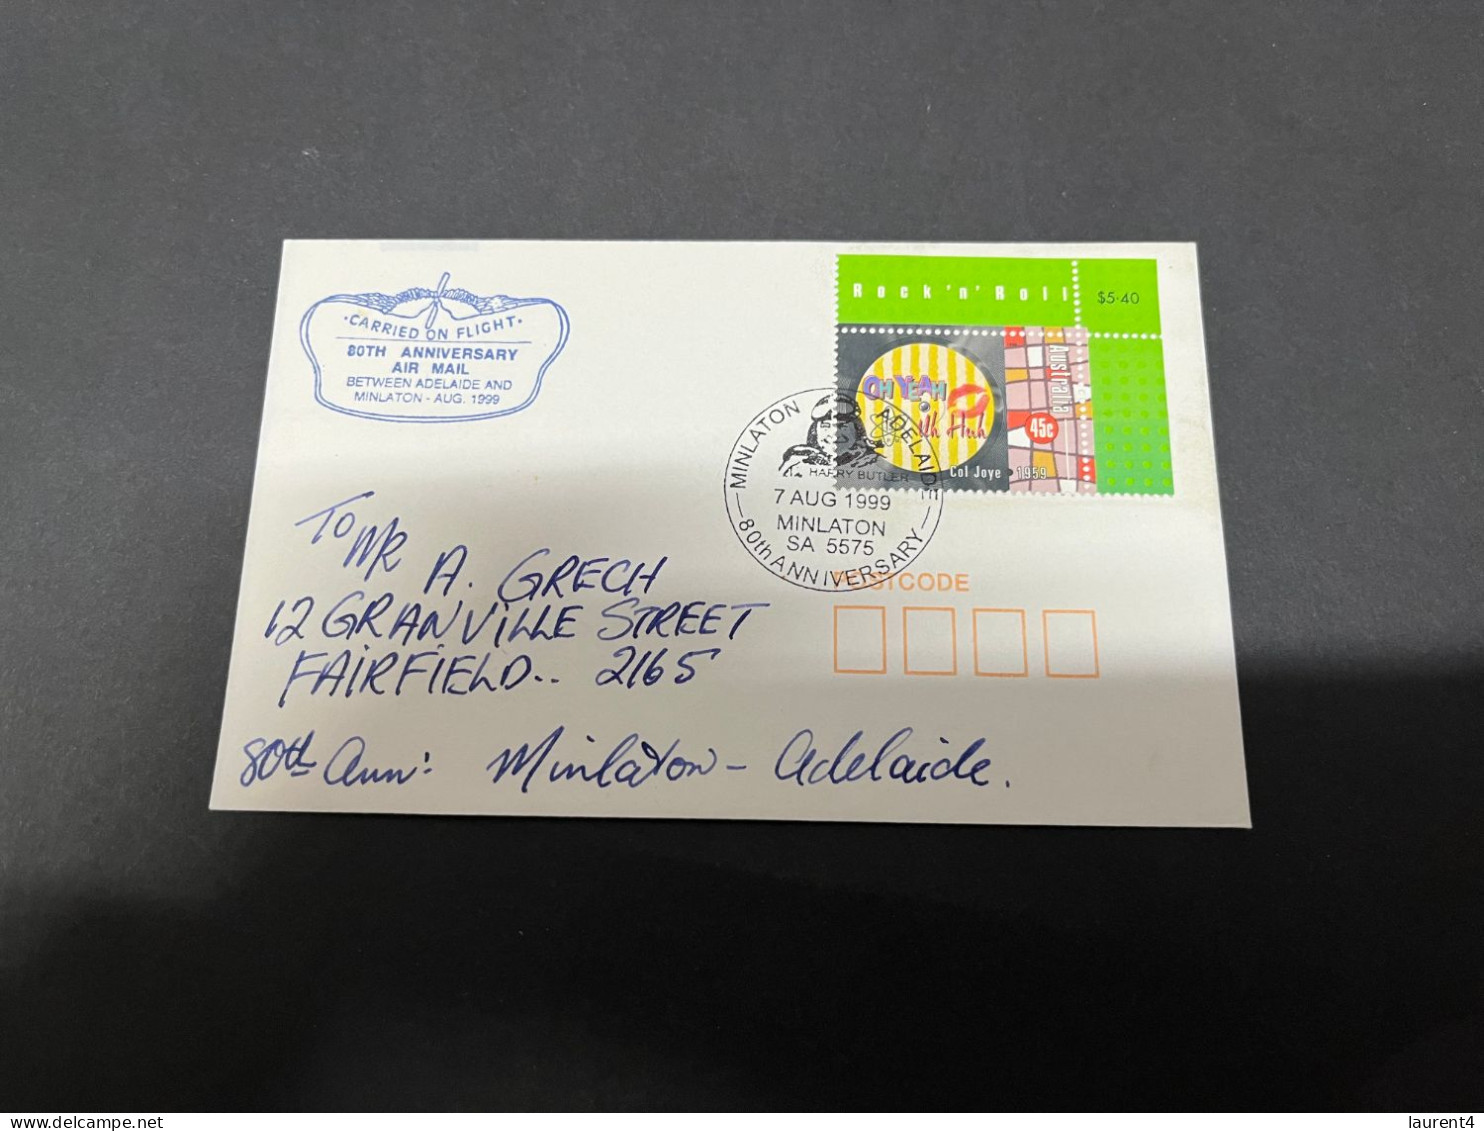 ·CARRIED ON FLIGHT·
80TH ANNIVERSARY
AIR MAIL
BETWEEN ADELAIDE AND
MINLATON - AUG. 1999
Rock 'n' Roll
$5·40
OH YEAH
Uh Huh
Australia
45c
Col Joye 1959
MINLATON ADELAIDE
HARRY BUTLER
7 AUG 1999
MINLATON
SA 5575
80th ANNIVERSARY
POSTCODE
To MR A. GRECH
12 GRANVILLE STREET
FAIRFIELD.. 2165
80th Ann: Minlaton - Adelaide.
laurent4